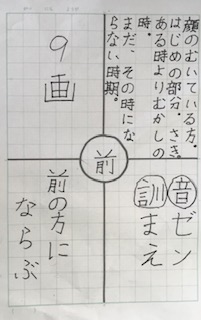 顔のむいている方。
はじめの部分。さき。
ある時よりむかしの
時。
まだ、その時にな
らない時期。
9画
前
音ゼン
訓まえ
前の方に
ならぶ